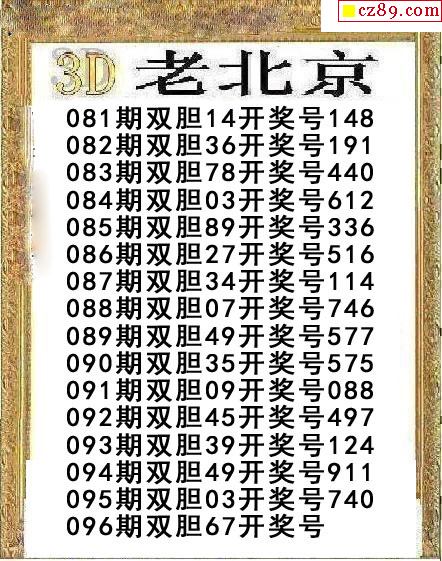 cz89.com
3D 老北京
081期双胆14开奖号148
082期双胆36开奖号191
083期双胆78开奖号440
084期双胆03开奖号612
085期双胆89开奖号336
086期双胆27开奖号516
087期双胆34开奖号114
088期双胆07开奖号746
089期双胆49开奖号577
090期双胆35开奖号575
091期双胆09开奖号088
092期双胆45开奖号497
093期双胆39开奖号124
094期双胆49开奖号911
095期双胆03开奖号740
096期双胆67开奖号